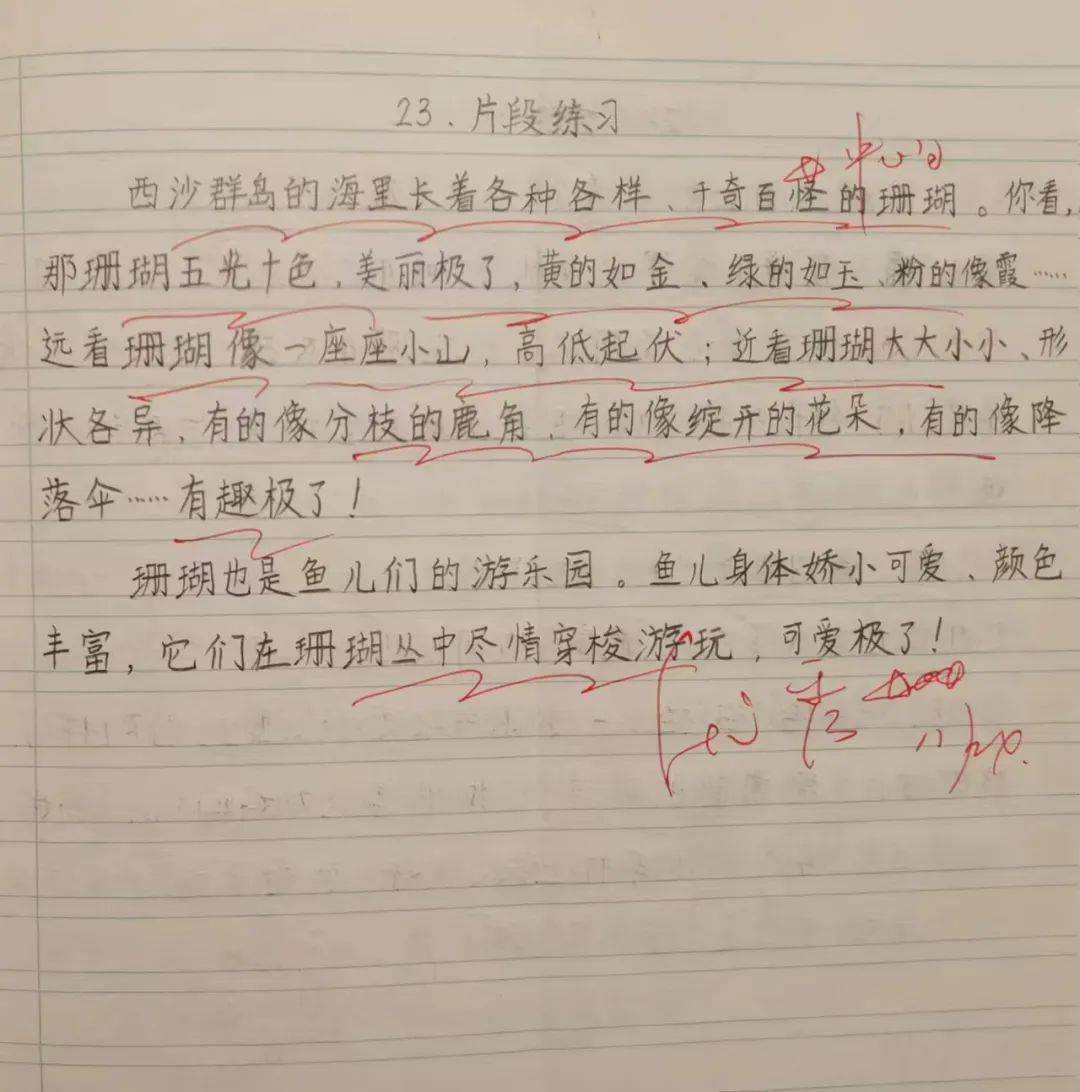 23.片段练习
西沙群岛的海里长着各种各样、千奇百怪的珊瑚。你看,
那珊瑚五光十色,美丽极了,黄的如金、绿的如玉、粉的像霞……
远看珊瑚像一座座小山,高低起伏;近看珊瑚大大小小、形
状各异、有的像分枝的鹿角,有的像绽开的花朵,有的像降
落伞……有趣极了!
珊瑚也是鱼儿们的游乐园。鱼儿身体娇小可爱、颜色
丰富,它们在珊瑚丛中尽情穿梭游玩,可爱极了!